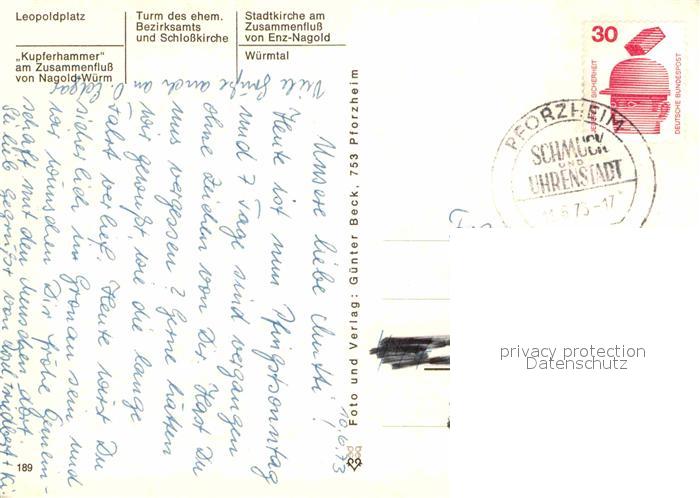 Leopoldplatz
„Kupferhammer"
am Zusammenfluß
von Nagold-Würm
Turm des ehem.
Bezirksamts
und Schloßkirche
Stadtkirche am
Zusammenfluß
von Enz-Nagold
Würmtal
30
JEDERZEIT SICHERHEIT
DEUTSCHE BUNDESPOST
PFORZHEIM
SCHMUCK
UND
UHRENSTADT
6.73-17
Foto und Verlag: Günter Beck, 753 Pforzheim
10.6.73
Unsere liebe Mutti!
Heute ist nun Pfingstsonntag
und 7 Tage sind vergangen
ohne Zeichen von Dir. Hast Du
uns vergessen? Gerne hätten
wir gewußt, wie die lange
Fahrt verlief. Heute wirst Du
sicherlich in Gronau sein und
wir wünschen Dir frohe Gemein-
schaft mit den Menschen dort.
Sei lieb gegrüßt von
Viele Grüße auch an
189
privacy protection
Datenschutz